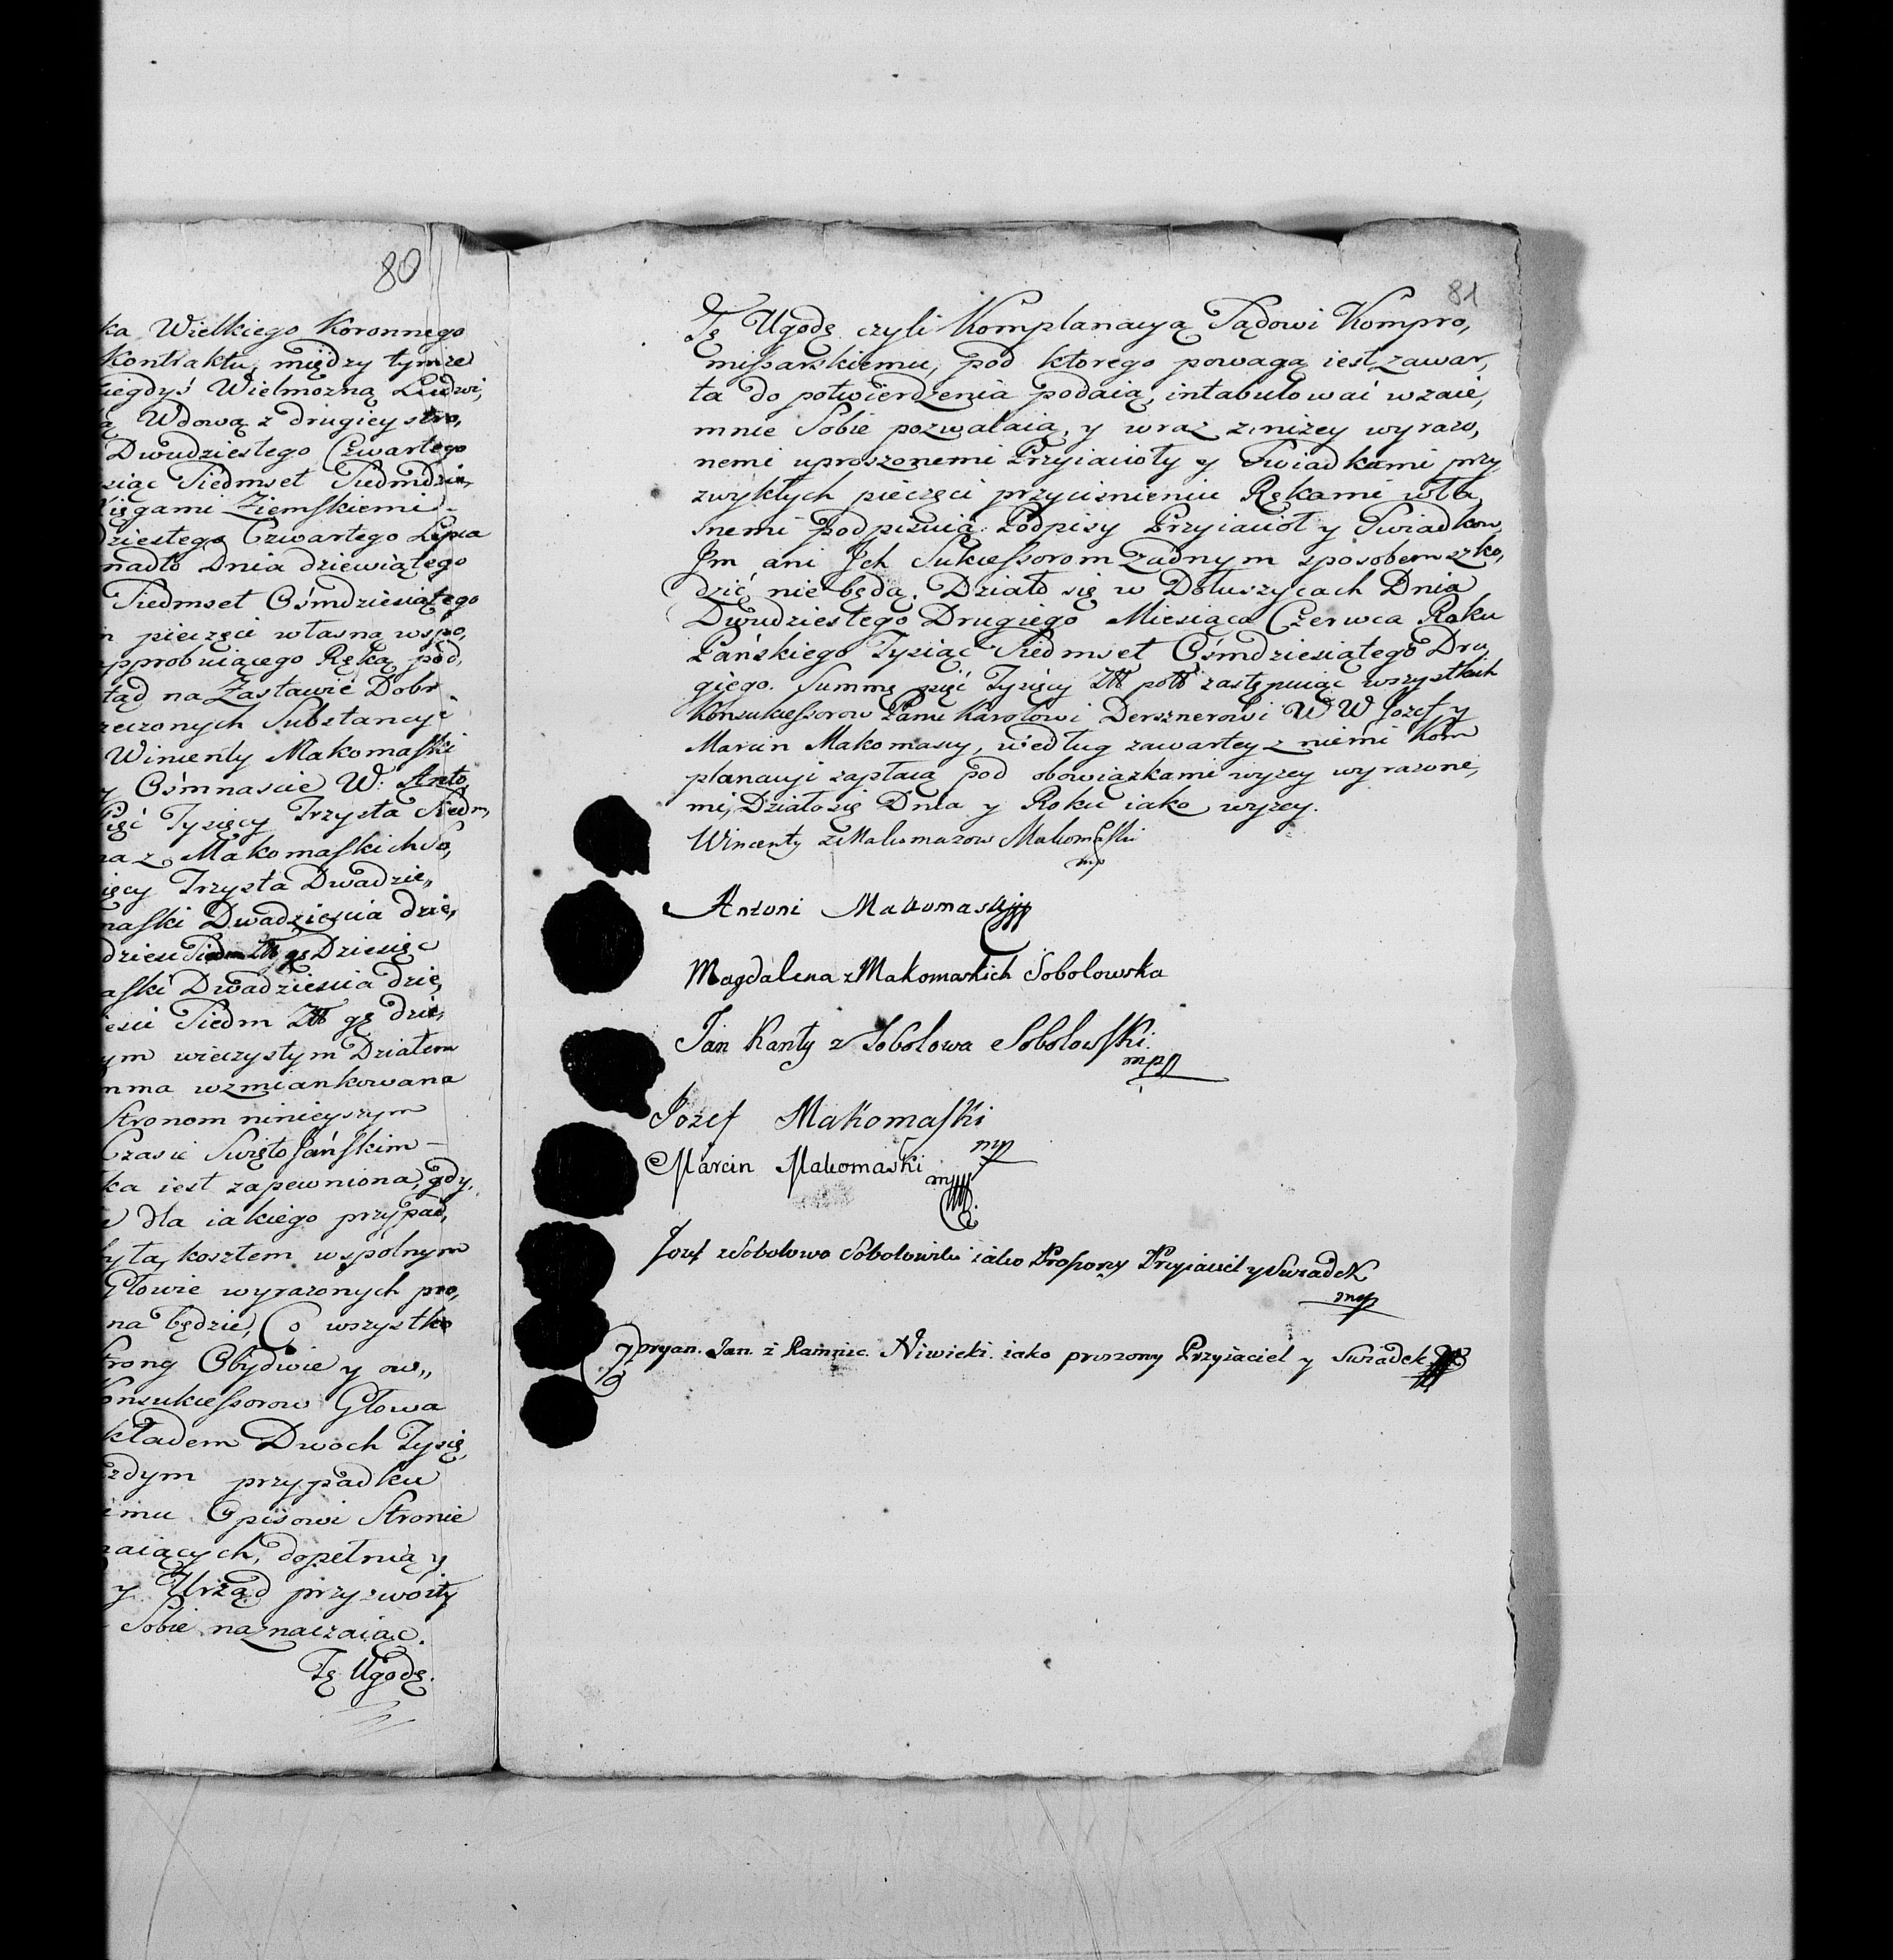 80
ka Wielkiego Koronnego
Kontraktu, między tymże
niegdyś Wielmożną Ludwi,
ą Wdową z drugiey stro,
Dwudziestego Czwartego
siąc Siedmset Siedmdzie,
Xięgami Ziemskiemi
dziestego Czwartego Lipca
nadto Dnia dziewiątego
Siedmset Ośmdziesiątego
n pieczęci własną wspo,
approbuiącego Ręką pod,
tąd na Zastawie Dobr
rzeczonych Substancyi
Wincenty Makomaski
y Ośmnascie W: Anto,
Pięć Tysięcy Trzysta Siedm,
na z Makomaskich So,
ięcy Trzysta Dwadzie,,
maski Dwadziescia dzie,
dziesci Siedm Złł gr Dziesięc
aski Dwadziescia dzie,
iesci Siedm Złł gr dzie,
ym wieczystym Działem
mma wzmiankowana
Stronom ninieyszym
Czasie Swięto Jańskim
ka iest zapewniona, gdy,
e dla iakiego przypad,
yta, kosztem wspolnym
Głowie wyrazonych pro,
na będzie, Co wszystko
strony Obydwie y ow,,
onsukcessorow Głowa
kładem Dwoch Tysię,
zdym przypadku
imu Opisowi Stronie
naiących, dopełnią y
y Urząd przyzwoity
Sobie naznaczaiąc.
Tę Ugodę.
81
Tę Ugodę czyli Komplanacyą Sądowi Kompro,
missarskiemu, pod ktorego powagą iest zawar,
ta do potwierdzenia podaią, intabulować wzaie,
mnie Sobie pozwalaią, y wraz z niżey wyrazo,
nemi uproszonemi Przyiacioły y Swiadkami przy
zwykłych pieczęci przycisnieniu Rękami wła,
snemi podpisuią. Podpisy Przyiacioł y Swiadkow
Im ani Ich Sukcessorom żadnym sposobem szko,
dzić nie będą. Działo się w Dołuszycach Dnia
Dwudziestego Drugiego Miesiąca Czerwca Roku
Pańskiego Tysiąc Siedmset Ośmdziesiątego Dru,
giego. Summę pięć Tysięcy Złł poll zastępuiąc wszystkich
Konsukcessorow Panu Karolowi Dersznerowi WW Jozef y
Marcin Makomascy, według zawartey z niemi Kom
planacyi zapłacą pod obowiązkami wyzey wyrazone,
mi, Działo się Dnia y Roku iako wyzey.
Wincenty z Makomazow Makomaski
mp
Antoni Makomaski
Magdalena z Makomaskich Sobolowska
Jan Kanty z Sobolowa Sobolowski
mpp
Jozef Makomaski
mp
Marcin Makomaski
mp
Jozef z Sobolowa Sobolowski iako Proszony Przyiaciel y Swiadek
mp
Cypryan. Jan. z Ramnic. Niwicki. iako proszony Przyiaciel y Swiadek